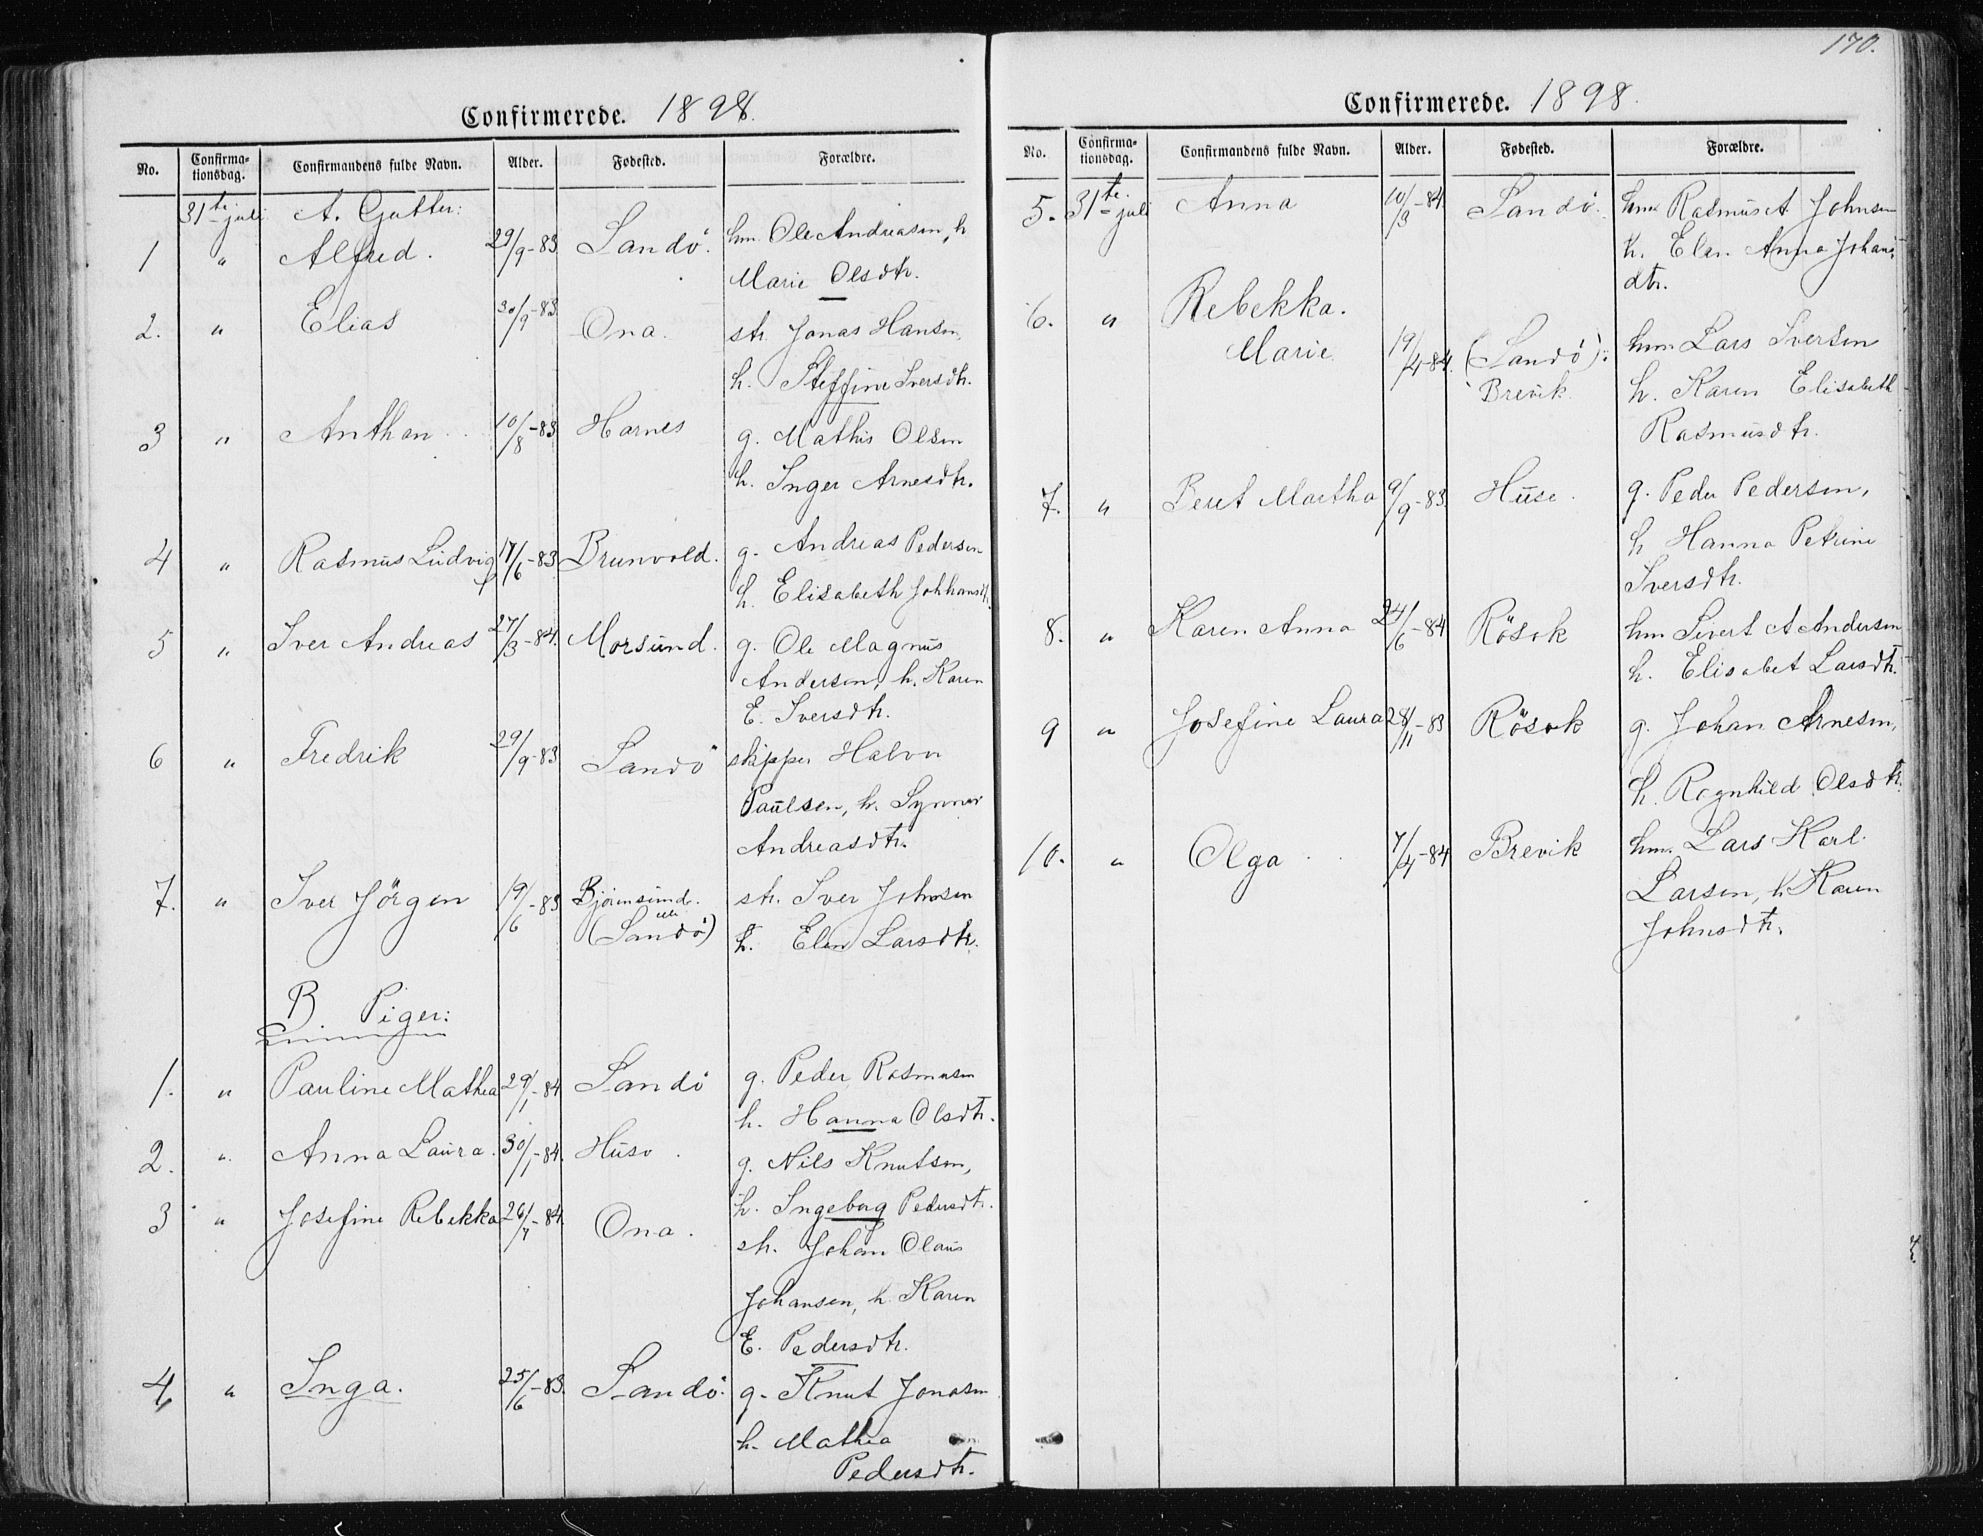 Confirmerede. 1898.
No. Confirma-tionsdag. Confirmandens fulde Navn. Alder. Fødested. Forældre.
31te juli A. Gutter:
1 " Alfred. 29/9-83 Sandö. hm. Ole Andreasen, h
Marie Olsdtr.
2. " Elias 30/9-83 Ona. str. Jonas Hansen,
h. Steffine Iversdtr.
3 " Anthon 10/8-83 Harnes g. Mathis Olsen
h. Inger Arnesdtr.
4 " Rasmus Ludvig 17/6-83 Brunvold. g. Andreas Pedersen
h. Elisabeth Johhansdtr.
5 " Iver Andreas 27/3-84. Morsund. g. Ole Magnus
Andersen, h. Karen
E. Iversdtr.
6 " Fredrik 29/9-83 Sandö skipper Halvor
Paulsen, h. Synnøv
Andreasdtr.
7. " Iver Jörgen 19/6-83 Bjørnsund. str. Iver Johnsen
(Sandö) h. Elen Larsdtr.
B Piger:
1. " Pauline Mathea 29/1-84 Sandö g. Peder Rasmusen
h. Hanna Olsdtr.
2. " Anna Laura. 30/1-84. Huse. g. Nils Knutsen,
h. Ingeborg Pedersdtr.
3 " Josefine Rebekka 26/7-84. Ona. str. Johan Olaus
Johansen, h. Karen
E. Pedersdtr.
4 " Inga. 25/6-83. Sandö. g. Knut Jonasen
h. Mathea
Pedersdtr.
170.
Confirmerede. 1898.
No. Confirma-tionsdag. Confirmandens fulde Navn. Alder. Fødested. Forældre.
5. 31te juli Anna 10/3-84. Sandö. hm. Rasmus A Johnsen
h. Elen Anna Johans
dtr.
6. " Rebekka.
Marie. 19/4-84. (Sandö): hm. Lars Iversen
Brevik. h. Karen Elisabeth
Rasmusdtr.
7. " Beret Martha 9/9-83. Huse. g. Peder Pedersen,
h Hanna Petrine
Iversdtr.
8. " Karen Anna 24/6-84 Rösok hm Sivert A Andersen
h. Elisabet Larsdtr.
9 " Josefine Laura 28/11-83 Rösok g. Johan Arnesen,
h. Ragnhild Olsdtr.
10. " Olga 7/4-84 Brevik hm. Lars Karl
Larsen, h Karen
Johnsdtr.